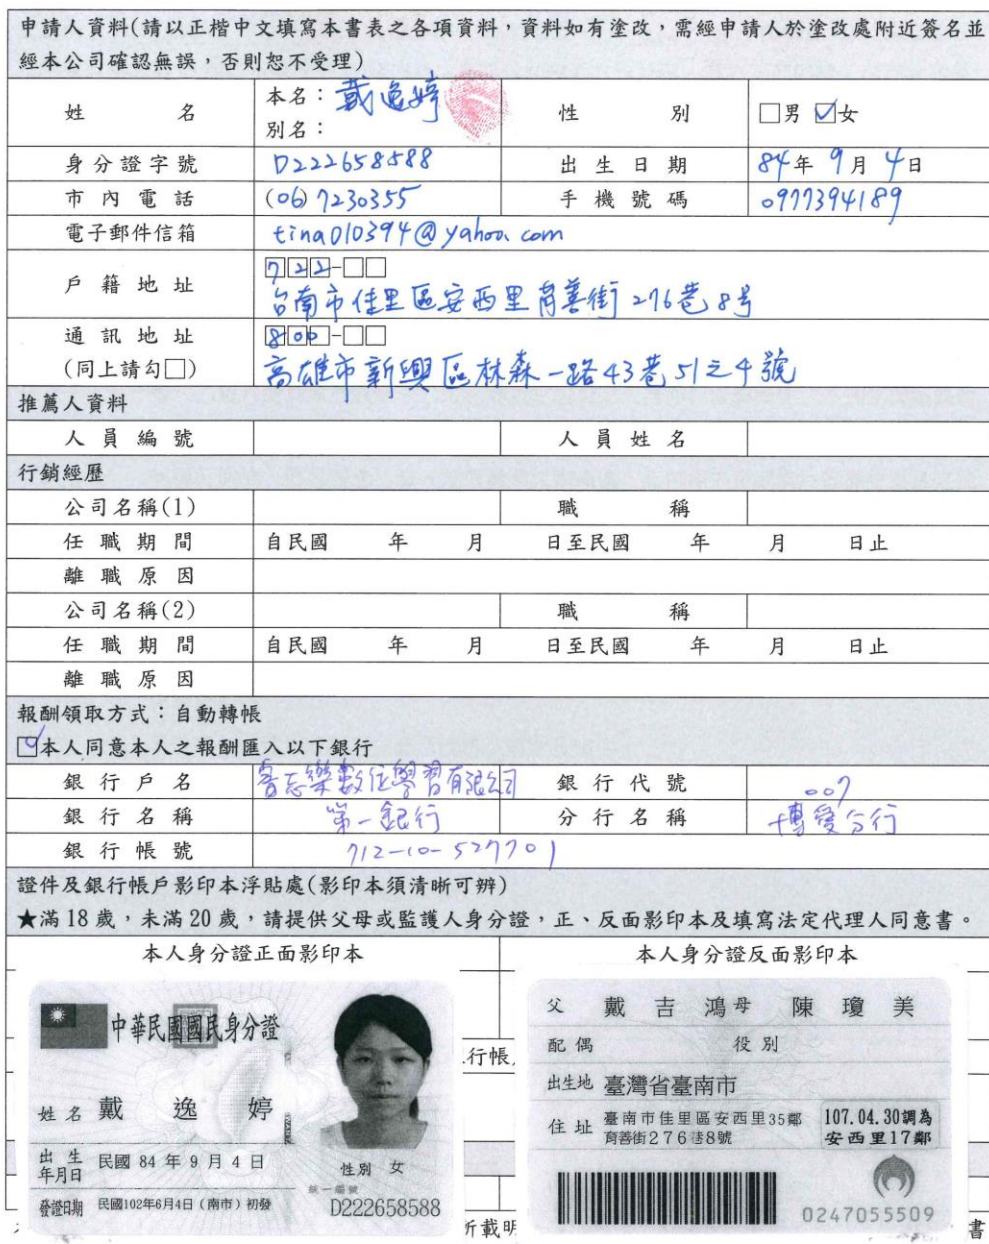 申請人資料(請以正楷中文填寫本書表之各項資料,資料如有塗改,需經申請人於塗改處附近簽名並
經本公司確認無誤,否則恕不受理)
姓 名 本名:戴逸婷 性 別 □男 ☑女
別名:
身分證字號 D222658588 出生日期 84年9月4日
市內電話 (06)7230355 手機號碼 0977394189
電子郵件信箱 tina010394@yahoo.com
戶籍地址 722-□□
台南市佳里區安西里育善街276巷8号
通訊地址 800-□□
(同上請勾□) 高雄市新興區林森一路43巷51之4號
推薦人資料
人員編號 人員姓名
行銷經歷
公司名稱(1) 職 稱
任職期間 自民國 年 月 日至民國 年 月 日止
離職原因
公司名稱(2) 職 稱
任職期間 自民國 年 月 日至民國 年 月 日止
離職原因
報酬領取方式:自動轉帳
☑本人同意本人之報酬匯入以下銀行
銀行戶名 數位學習有限公司 銀行代號 007
銀行名稱 第一銀行 分行名稱 博愛分行
銀行帳號 712-10-527701
證件及銀行帳戶影印本浮貼處(影印本須清晰可辨)
★滿18歲,未滿20歲,請提供父母或監護人身分證,正、反面影印本及填寫法定代理人同意書。
本人身分證正面影印本 本人身分證反面影印本
中華民國國民身分證
姓名 戴逸婷
出生年月日 民國84年9月4日
性別 女
發證日期 民國102年6月4日(南市)初發
統一編號 D222658588
父 戴吉鴻 母 陳瓊美
配偶 役別
出生地 臺灣省臺南市
住址 臺南市佳里區安西里35鄰
育善街276巷8號
107.04.30調為
安西里17鄰
0247055509
行帳
所載明
書